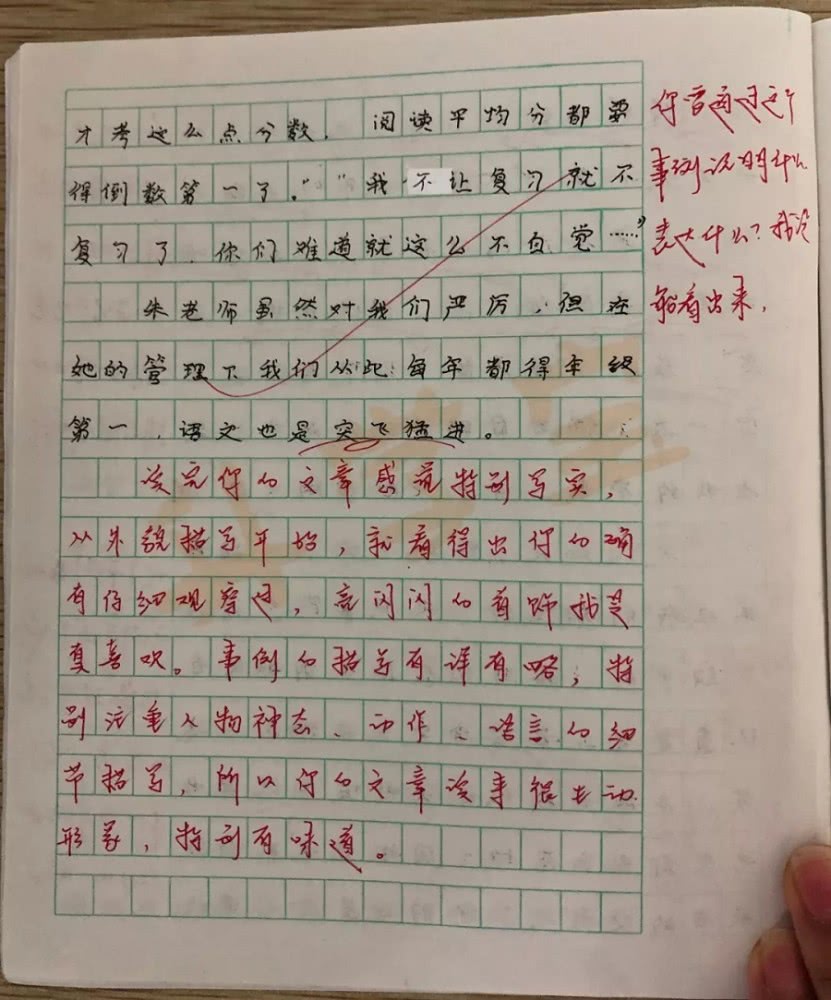 才考这么点分数，阅读平均分都要
得倒数第一了。”“我不让复习就不
复习了，你们难道就这么不自觉……”
朱老师虽然对我们严厉，但在
她的管理下我们从此每年都得年级
第一，语文也是突飞猛进。
读完你的文章感觉特别写实，
从外貌描写开始，就看得出你的确
有仔细观察过，亮闪闪的首饰我是
真喜欢。事例的描写有详有略，特
别注重人物神态、动作、语言的细
节描写，所以你的文章读来很生动
形象，特别有味道。
你当通过这个
事例说明什么
表达什么？我没
能看出来，